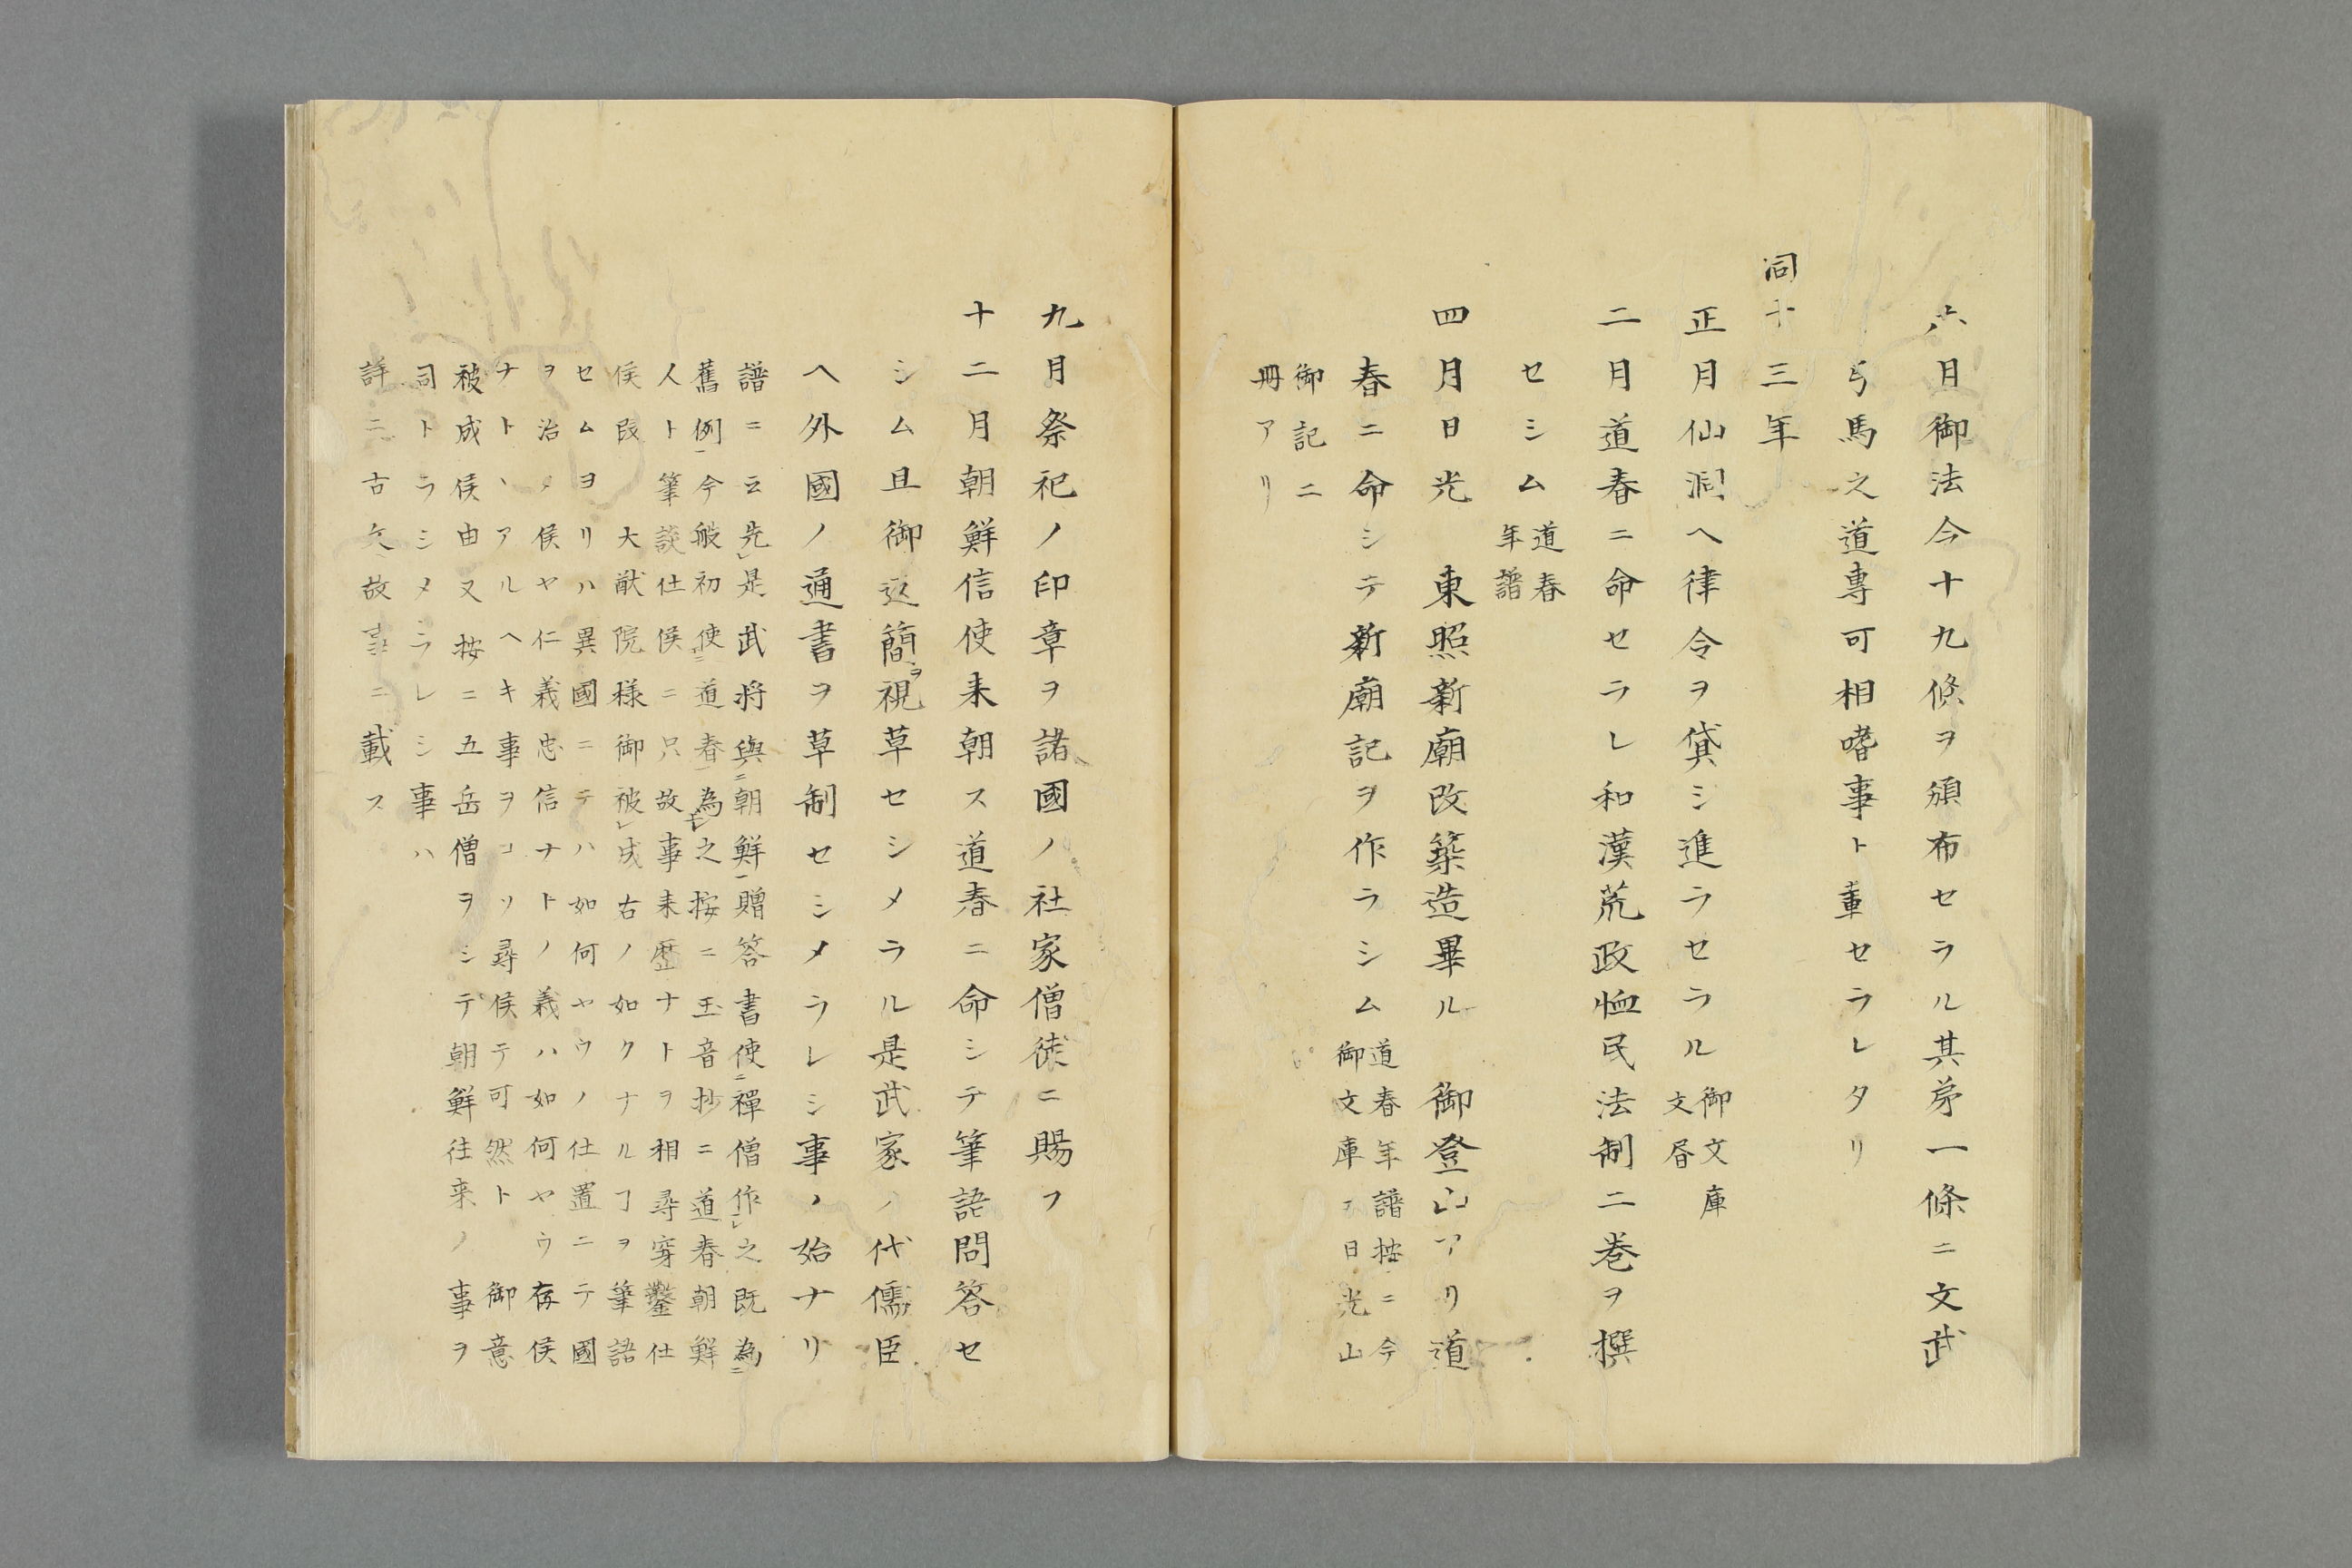 六月御法令十九條ヲ頒布セラル其第一條ニ文武
弓馬之道專可相嗜事ト重セラレタリ
同十三年
正月仙洞ヘ律令ヲ貸シ進ラセラル御文庫
文晷
二月道春ニ命セラレ和漢荒政恤民法制二巻ヲ撰
セシム道春
年譜
四月日光　東照新廟改築造畢ル　御登山アリ道
春ニ命シテ新廟記ヲ作ラシム道春年譜按ニ今
御文庫ニ日光山
御記二
冊アリ
九月祭祀ノ印章ヲ諸國ノ社家僧徒ニ賜フ
十二月朝鮮信使来朝ス道春ニ命シテ筆語問答セ
シム且御返簡ヲ視草セシメラル是武家ノ代儒臣
ヘ外國ノ通書ヲ草制セシメラレシ事ノ始ナリ
譜ニ云先レ是武将與ニ朝鮮一贈答書使ニ禪僧作レ之既為ニ
舊例一今般初使ニ道春一為レ之按ニ玉音抄ニ道春朝鮮
人ト筆談仕候ニ只故事来歴ナトヲ相尋穿鑿仕
候段　大猷院様御被レ成右ノ如クナルヿヲ筆語
セムヨリハ異國ニテハ如何ヤウノ仕置ニテ國
ヲ治メ候ヤ仁義忠信ナトノ義ハ如何ヤウ存候
ナトヽアルヘキ事ヲコソ尋候テ可然ト　御意
被成候由又按ニ五岳僧ヲシテ朝鮮往来ノ事ヲ
司トラシメラレシ事ハ
詳ニ古文故事ニ載ス